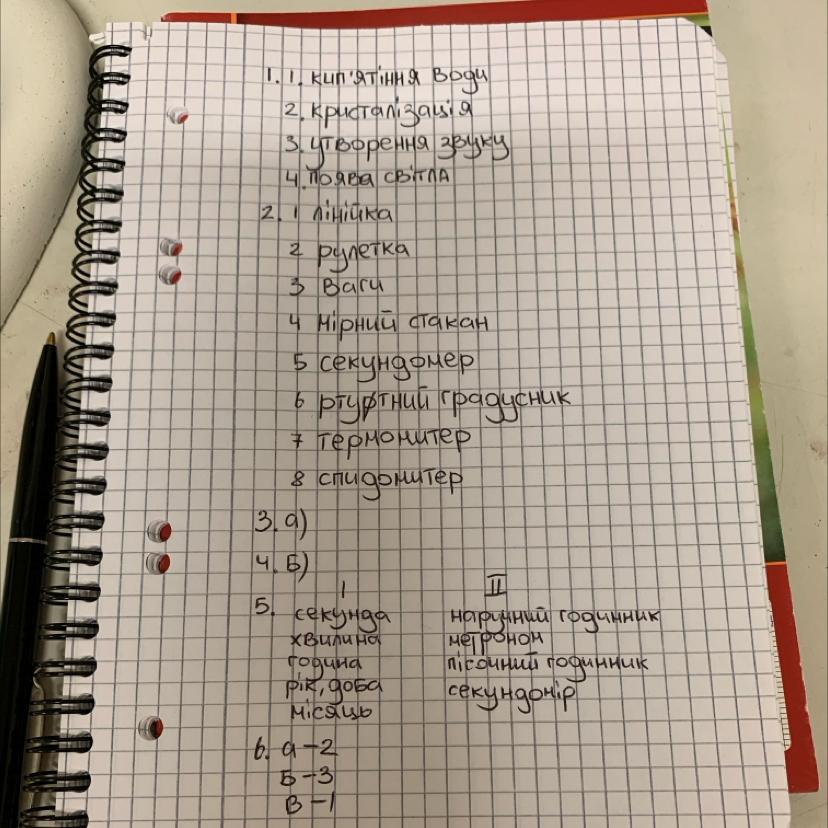 1. 1. кип'ятіння води
2. кристалізація
3. утворення звуку
4. поява світла
2. 1 лінійка
2 рулетка
3 Ваги
4 мірний стакан
5 секундомер
6 ртутний градусник
7 термомитер
8 спидомитер
3. а)
4. Б)
I II
5. секунда наручний годинник
хвилина метроном
година пісочний годинник
рік, доба секундомір
місяць
6. а – 2
Б – 3
В – 1